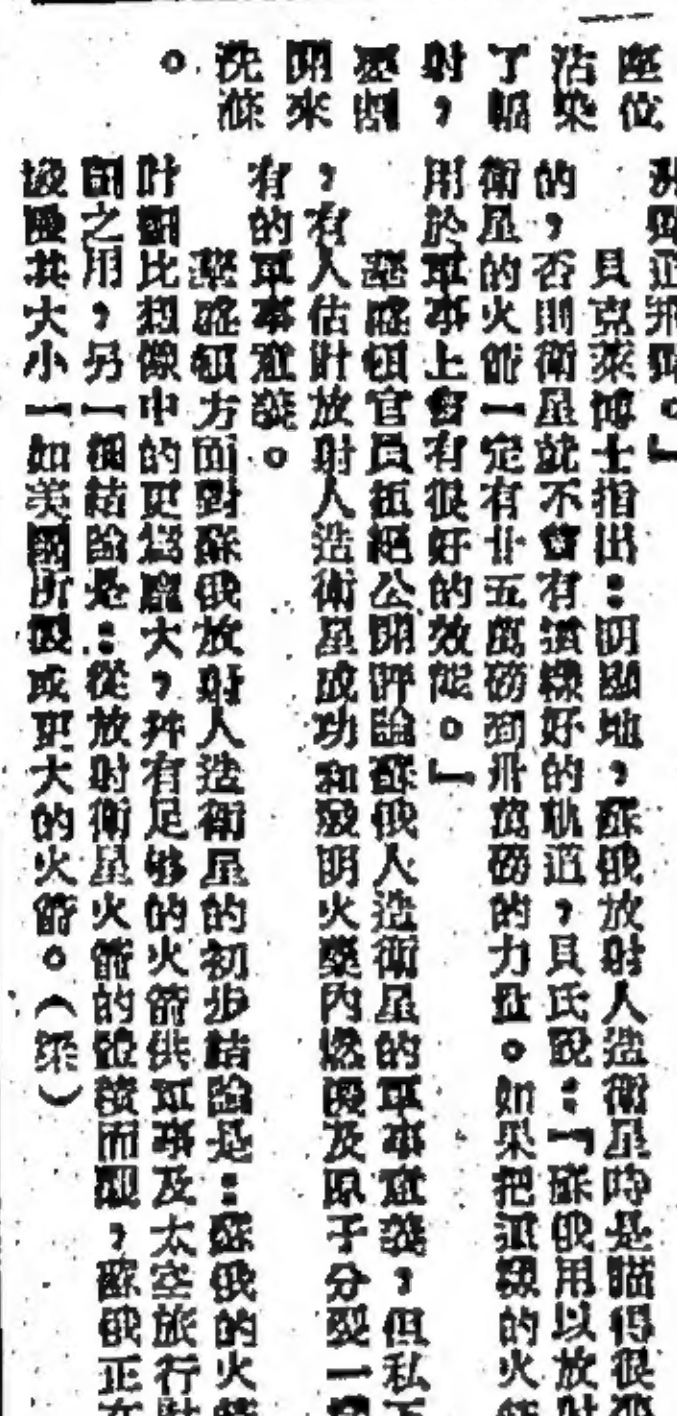 座位
沾染
了幅
射，
割
開來
洗滌
。
正飛
。」
貝克萊博士指出：明顯地，蘇俄放射人造衛星時是瞄得很
的，否則衛星就不會有這樣好的軌道，貝氏說：「蘇俄用以放射
衛星的火箭一定有廿五萬磅到卅萬磅的力量。如果把這類的火箭
用於軍事上會有很好的效能。」
華盛頓官員拒絕公開評論蘇俄人造衛星的軍事意義，但私下
，有人估計放射人造衛星成功和發明火藥內燃機及原子分裂一
有的軍事意義。
華盛頓方面對蘇俄放射人造衛星的初步結論是：蘇俄的火箭
計劃比想像中的更為龐大，并有足够的火箭供軍事及太空旅行計
劃之用，另一個結論是：從放射衛星火箭的體積而觀，蘇俄正在
試驗其大小一如美國所製或更大的火箭。（榮）